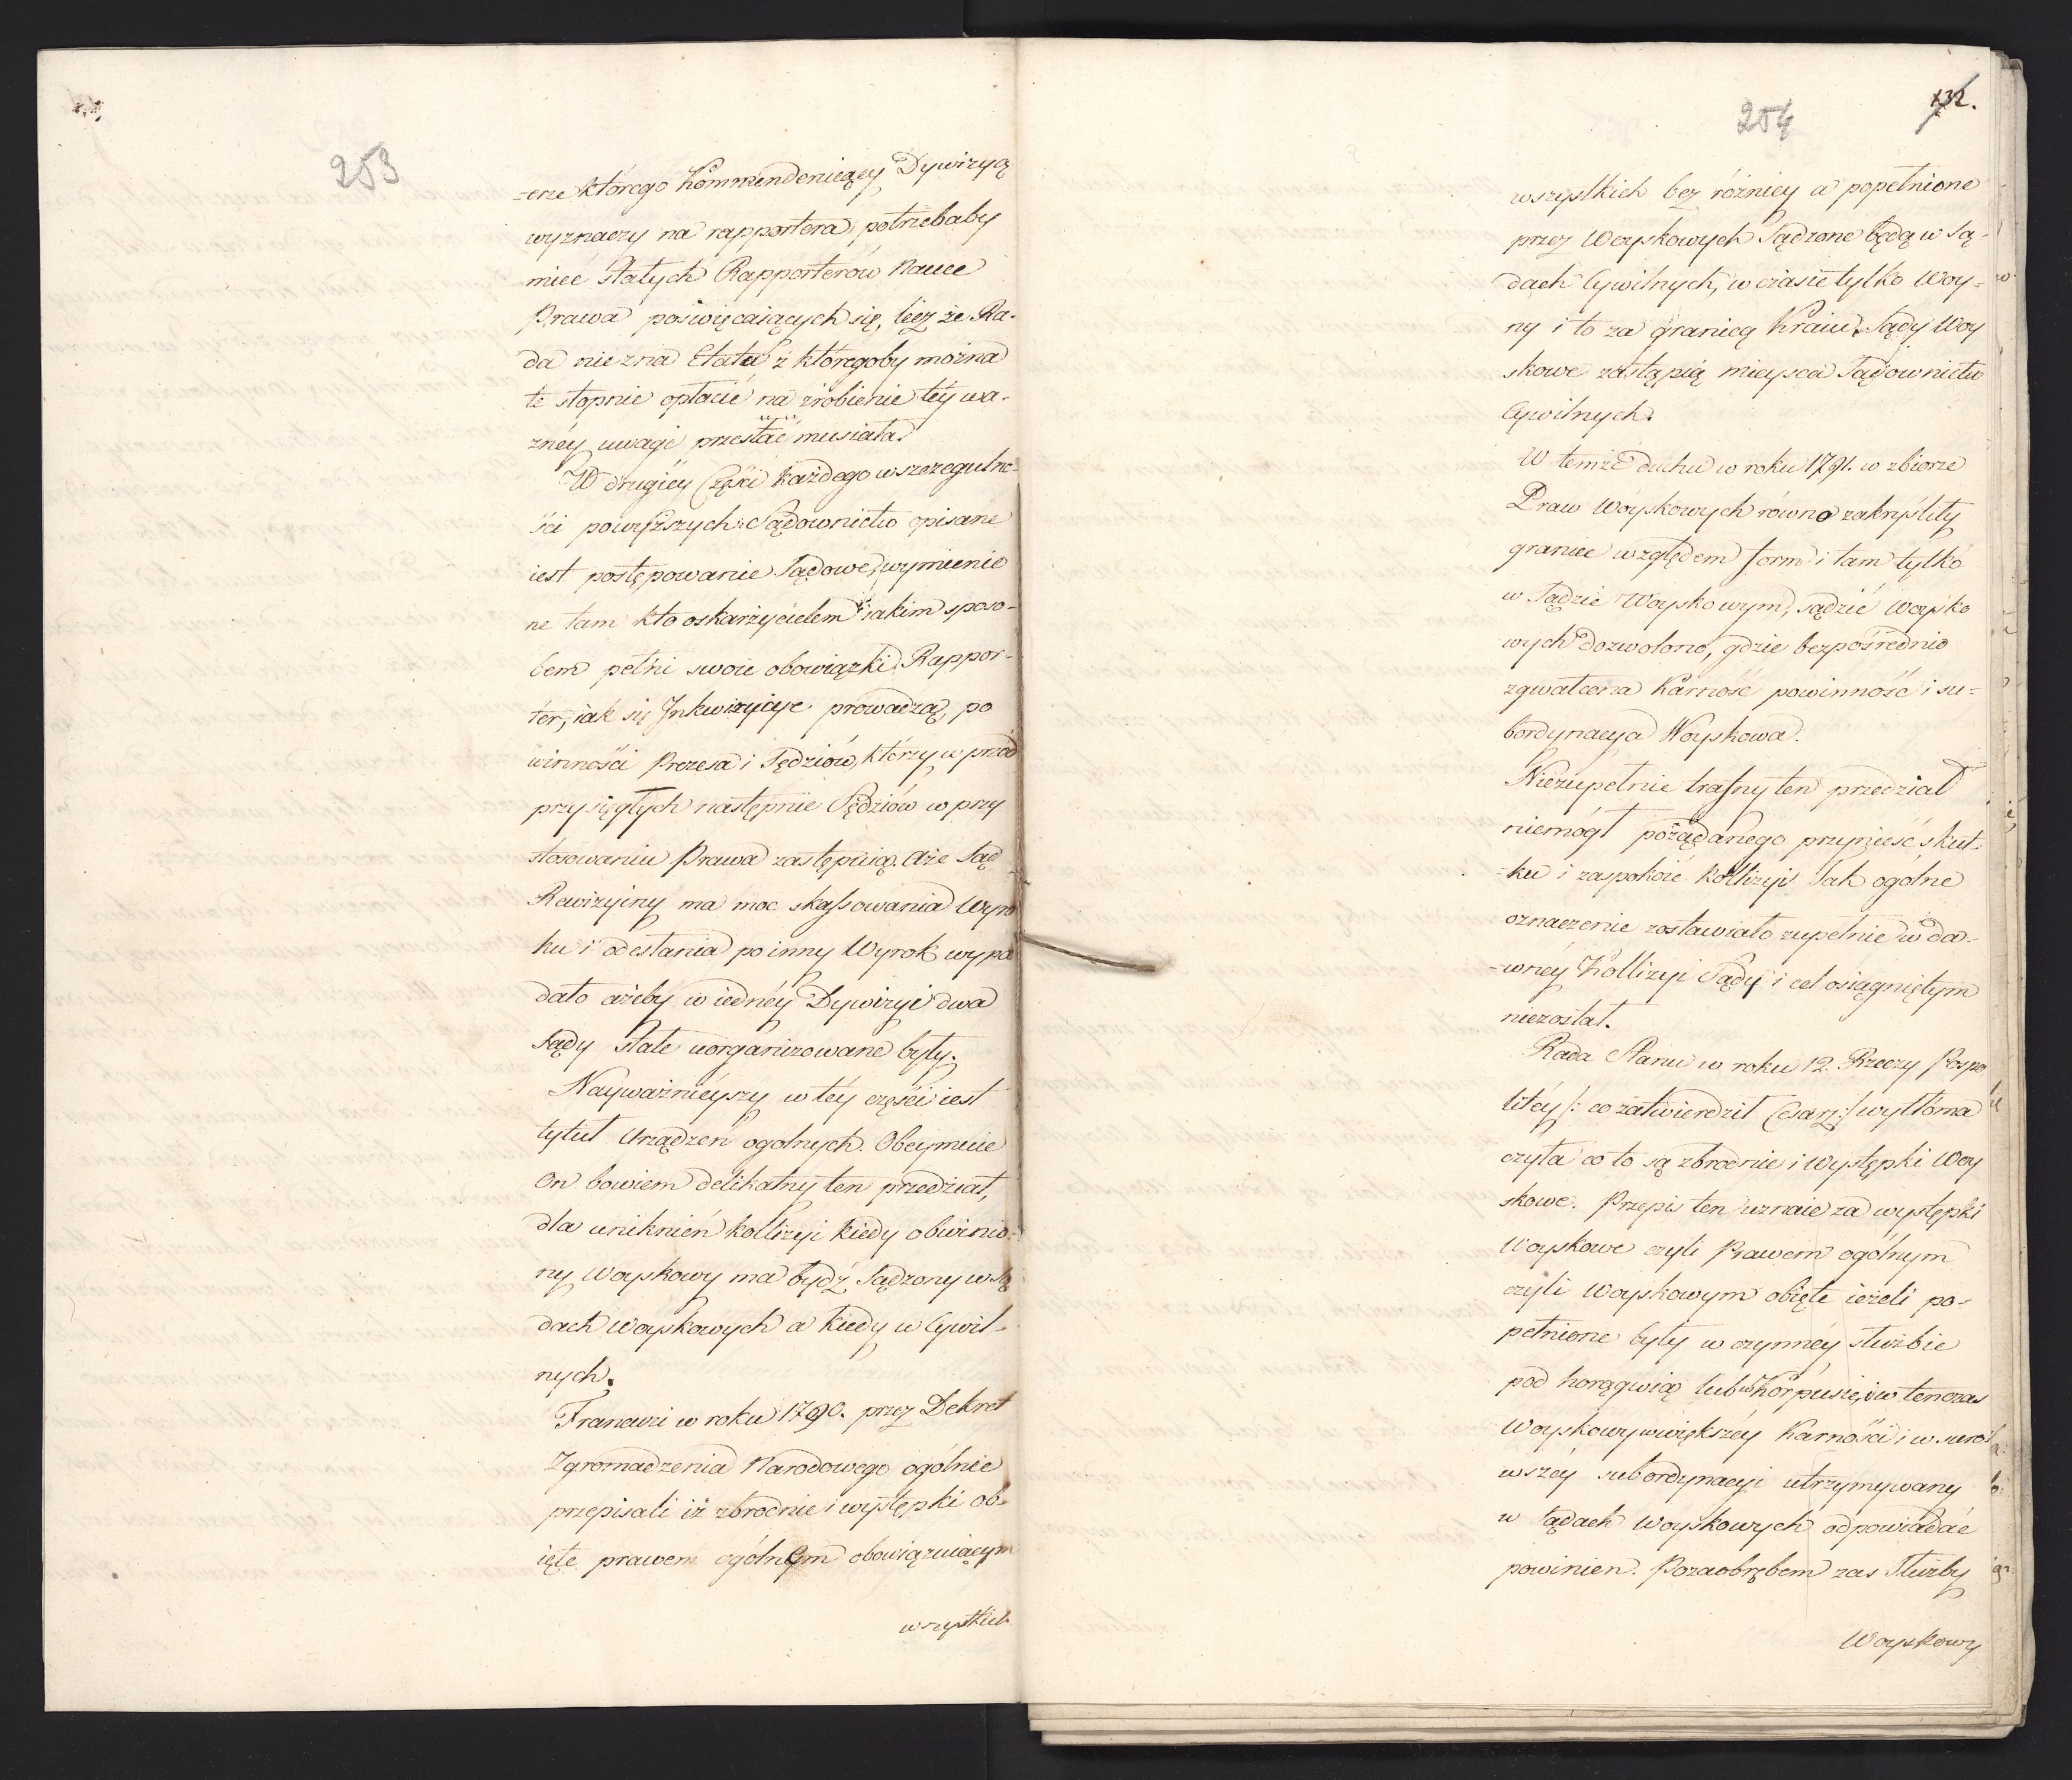 253
-cze którego Kommenderuiący Dywizyą
wyznaczy na rapportera, potrzebaby
mieć stałych Rapporterów Nauce
Prawa poświęcaiących się, lecz że Ra-
da nie zna Etatu z któregoby można
te stopnie opłacić na zrobienie tey wa-
żnéy uwagi przestać musiała.
W drugiéy Części każdego wszczegulno-
ści powyższych Sądownictw opisane
iest postępowanie Sądowe, wymienio
ne tam kto oskarżycielem i iakim sposo-
bem pełni swoie obowiązki Rappor-
ter, iak się Inkwizycye prowadzą, po
winności Prezesa i Sędziów, którzy w przód
przysięgłych następnie Sędziów w przy
stosowaniu Prawa zastępuią. Aże Sąd
Rewizyiny ma moc skassowania Wyro
ku i odesłania po inny Wyrok wypa
dało ażeby w iednéy Dywizyi dwa
sądy stałe uorganizowane były.
Nayważnieyszy w téy części iest
tytuł Urządzeń ogolnych. Obeymuie
On bowiem delikatny ten przedział,
dla uniknień kollizyi kiedy obwinio-
ny Woyskowy ma bydź Sądzony w Są
dach Woyskowych a kiedy w Cywil-
nych.
Francuzi w roku 1790. przez Dekret
Zgromadzenia Narodowego ogólnie
przepisali iż zbrodnie i występki ob-
ięte prawem ogólnym obowiązuiącym
wszystkich
254
132.
wszystkich bez różnicy a popełnione
przez Woyskowych Sądzone będą w Są-
dach Cywilnych, w czasie tylko Woy-
ny i to za granicą Kraiu, Sądy Woy
skowe zastąpią mieysca Sądownictw
Cywilnych.
W temże duchu w roku 1791. w zbiorze
Praw Woyskowych równo zakryśliły
granice względem form i tam tylko
w Sądzie Woyskowym, sądzić Woysko
wych dozwolono, gdzie bezpośrednio
zgwałcona Karność powinność i su-
bordynacya Woyskowa.
Niezupełnie trafny ten przedział
niemógł pożądanego przynieść skut-
-ku i zaspokoić Kollizyi. Tak ogólne
oznaczenie zostawiało zupełnie w da-
-wnéy Kollizyi Sądy i cel osiągniętym
niezostał.
Rada Stanu w roku 12. Rzeczy Pospo
litéy /: co zatwierdził Cesarz :/ wytłóma
czyła co to są zbrodnie i Występki Woy
skowe. Przepis ten uznaie za występki
Woyskowe czyli Prawem ogólnym
czyli Woyskowym obięte ieżeli po-
pełnione były w czynnéy służbie
pod horągwią lub w Korpusie, w tenczas
Woyskowy w większéy Karności i w suro-
wszéy subordynacyi utrzymywany
w Sądach Woyskowych odpowiadać
powinien. Pozaobrębem zas Służby
Woyskowy